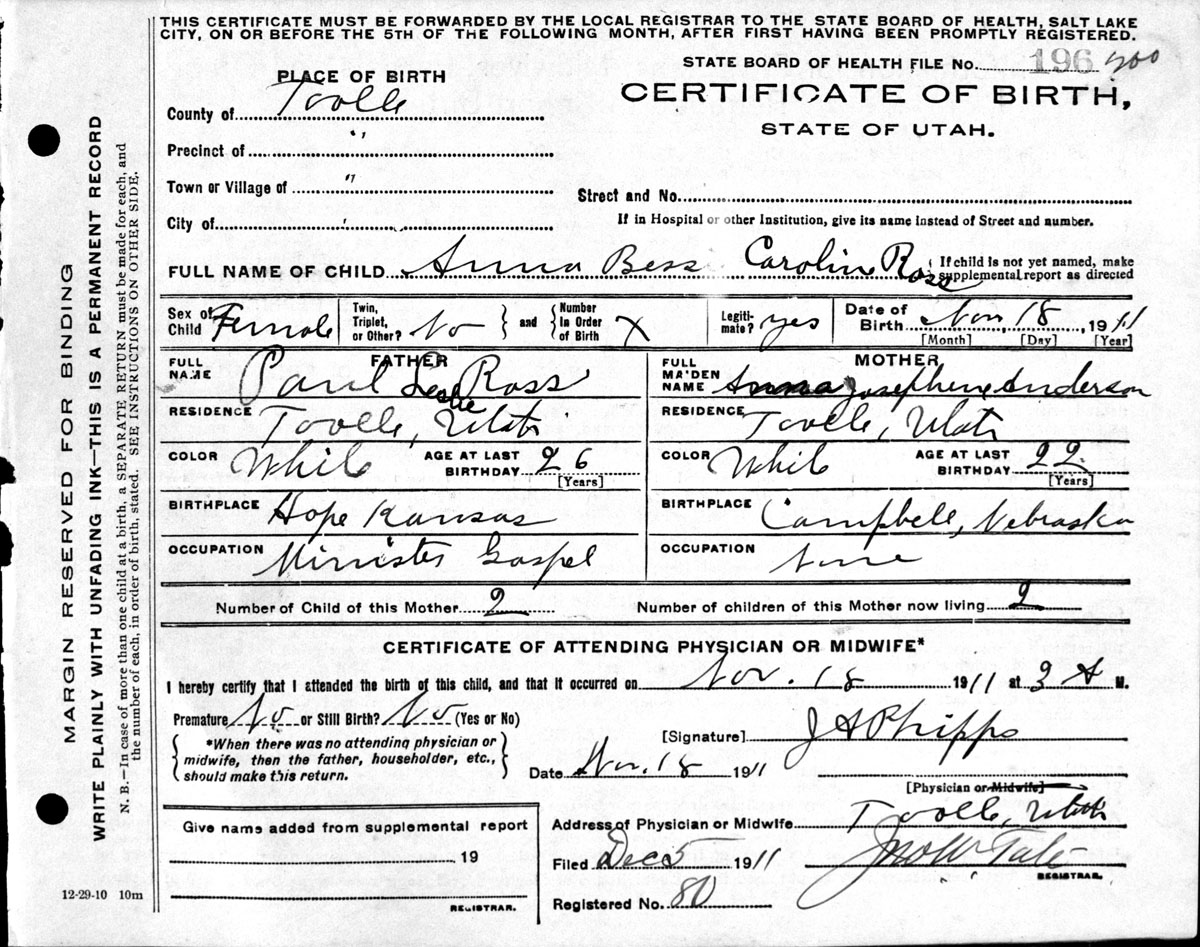 THIS CERTIFICATE MUST BE FORWARDED BY THE LOCAL REGISTRAR TO THE STATE BOARD OF HEALTH, SALT LAKE
CITY, ON OR BEFORE THE 5TH OF THE FOLLOWING MONTH, AFTER FIRST HAVING BEEN PROMPTLY REGISTERED.
STATE BOARD OF HEALTH FILE No. 196 400
PLACE OF BIRTH
CERTIFICATE OF BIRTH,
STATE OF UTAH.
County of Tooele
Precinct of "
Town or Village of "
Street and No.
City of "
If in Hospital or other Institution, give its name instead of Street and number.
FULL NAME OF CHILD Anna Bess Caroline Ross { If child is not yet named, make
supplemental report as directed
Sex of Child Female Twin, Triplet, or Other? No } and { Number In Order of Birth X Legiti- mate? yes Date of Birth Nov 18, 1911
[Month] [Day] [Year]
FATHER MOTHER
FULL NAME Paul Leslie Ross FULL MAIDEN NAME Anna Josephine Anderson
RESIDENCE Tooele, Utah RESIDENCE Tooele, Utah
COLOR White AGE AT LAST BIRTHDAY 26 [Years] COLOR White AGE AT LAST BIRTHDAY 22 [Years]
BIRTHPLACE Hope Kansas BIRTHPLACE Campbell, Nebraska
OCCUPATION Minister Gospel OCCUPATION None
Number of Child of this Mother 2 Number of children of this Mother now living 2
CERTIFICATE OF ATTENDING PHYSICIAN OR MIDWIFE*
I hereby certify that I attended the birth of this child, and that it occurred on Nov. 18 1911 at 3 A M.
Premature No or Still Birth? No (Yes or No)
[Signature] J A Phipps
*When there was no attending physician or
midwife, then the father, householder, etc.,
should make this return.
Date Nov. 18 1911
[Physician or Midwife]
Address of Physician or Midwife Tooele, Utah
Give name added from supplemental report
19
REGISTRAR.
Filed Dec 5 1911
REGISTRAR.
Registered No. 80
12-29-10 10m
MARGIN RESERVED FOR BINDING
WRITE PLAINLY WITH UNFADING INK—THIS IS A PERMANENT RECORD
N. B.—In case of more than one child at a birth, a SEPARATE RETURN must be made for each, and
the number of each, in order of birth, stated. SEE INSTRUCTIONS ON OTHER SIDE.